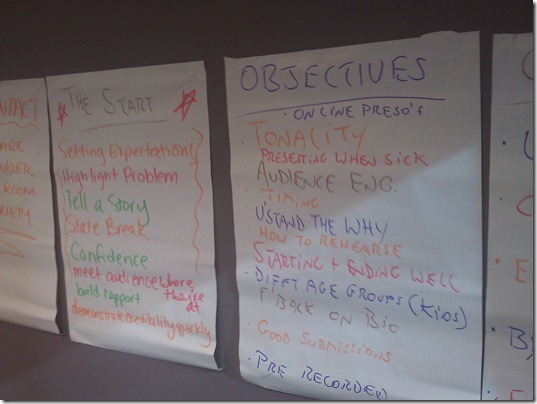 THE START
Setting Expectations
Highlight Problem
Tell a Story
State Break
Confidence
meet audience where they're at
build rapport
demonstrate credibility quickly
OBJECTIVES
• ONLINE PRESO'S
• TONALITY
PRESENTING WHEN SICK
AUDIENCE ENG.
• TIMING
U'STAND THE WHY
• HOW TO REHEARSE
STARTING + ENDING WELL
• DIFFT AGE GROUPS (KIDS)
F'BACK ON BIO
• GOOD SUBMISSIONS
• PRE RECORDED